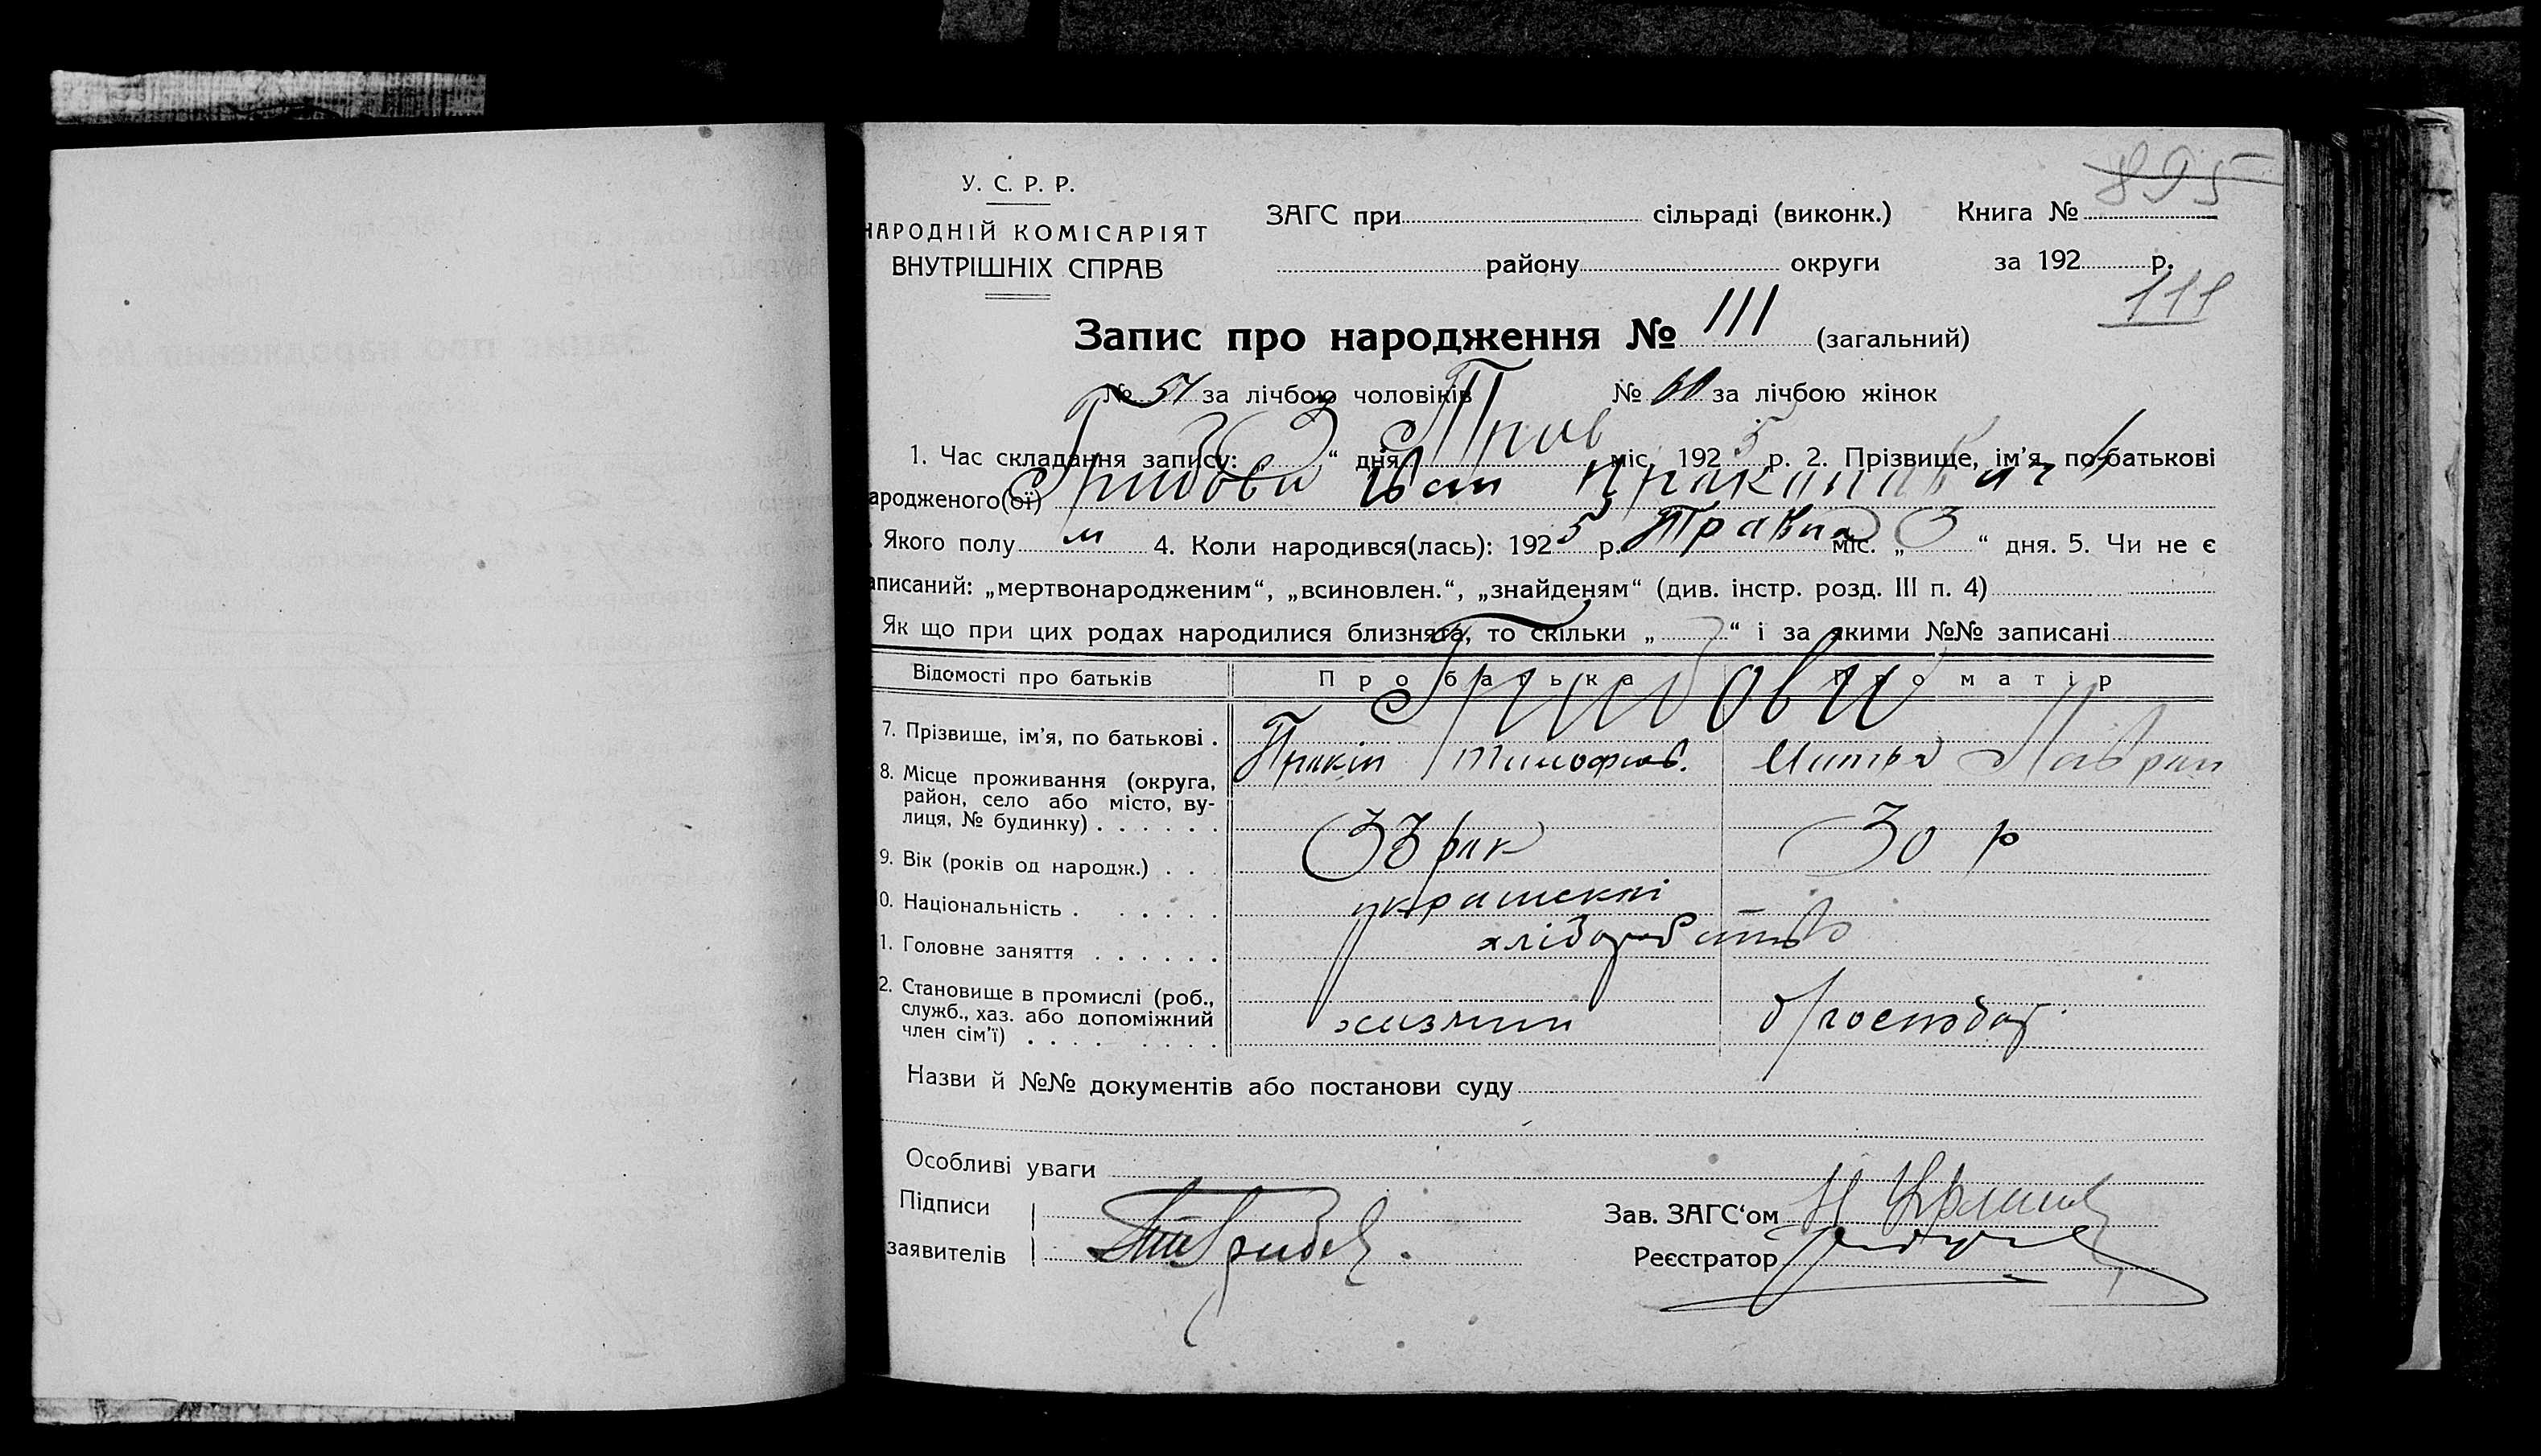 895
У. С. Р. Р.
НАРОДНІЙ КОМІСАРІЯТ
ВНУТРІШНІХ СПРАВ
ЗАГС при сільраді (виконк.) Книга №
району округи за 192 р.
111
Запис про народження № 111 (загальний)
№ 51 за лічбою чоловіків № 60 за лічбою жінок
1. Час складання запису: „ “ дня Трав міс. 1925 р. 2. Прізвище, ім'я, по-батькові
ародженого(ої) Грибови
. Якого полу м 4. Коли народився(лась): 1925 р. Травня міс. „3“ дня. 5. Чи не є
аписаний: „мертвонародженим“, „всиновлен.“, „знайденям“ (див. інстр. розд. III п. 4)
Як що при цих родах народилися близнята, то скільки „ “ і за якими №№ записані
Відомості про батьків Про батька Про матір
Грибови
7. Прізвище, ім'я, по батькові . Пракіп Тимофиев.
8. Місце проживання (округа,
район, село або місто, ву-
лиця, № будинку) . . . . . .
9. Вік (років од народж.) . . . 33 рик 30 р
0. Національність . . . . . .
1. Головне заняття . . . . . . хліборобство
2. Становище в промислі (роб.,
служб., хаз. або допоміжний
член сім'ї) . . . . . . . . хазяин господар.
Назви й №№ документів або постанови суду
Особливі уваги
Підписи Зав. ЗАГС'ом
заявителів Реєстратор